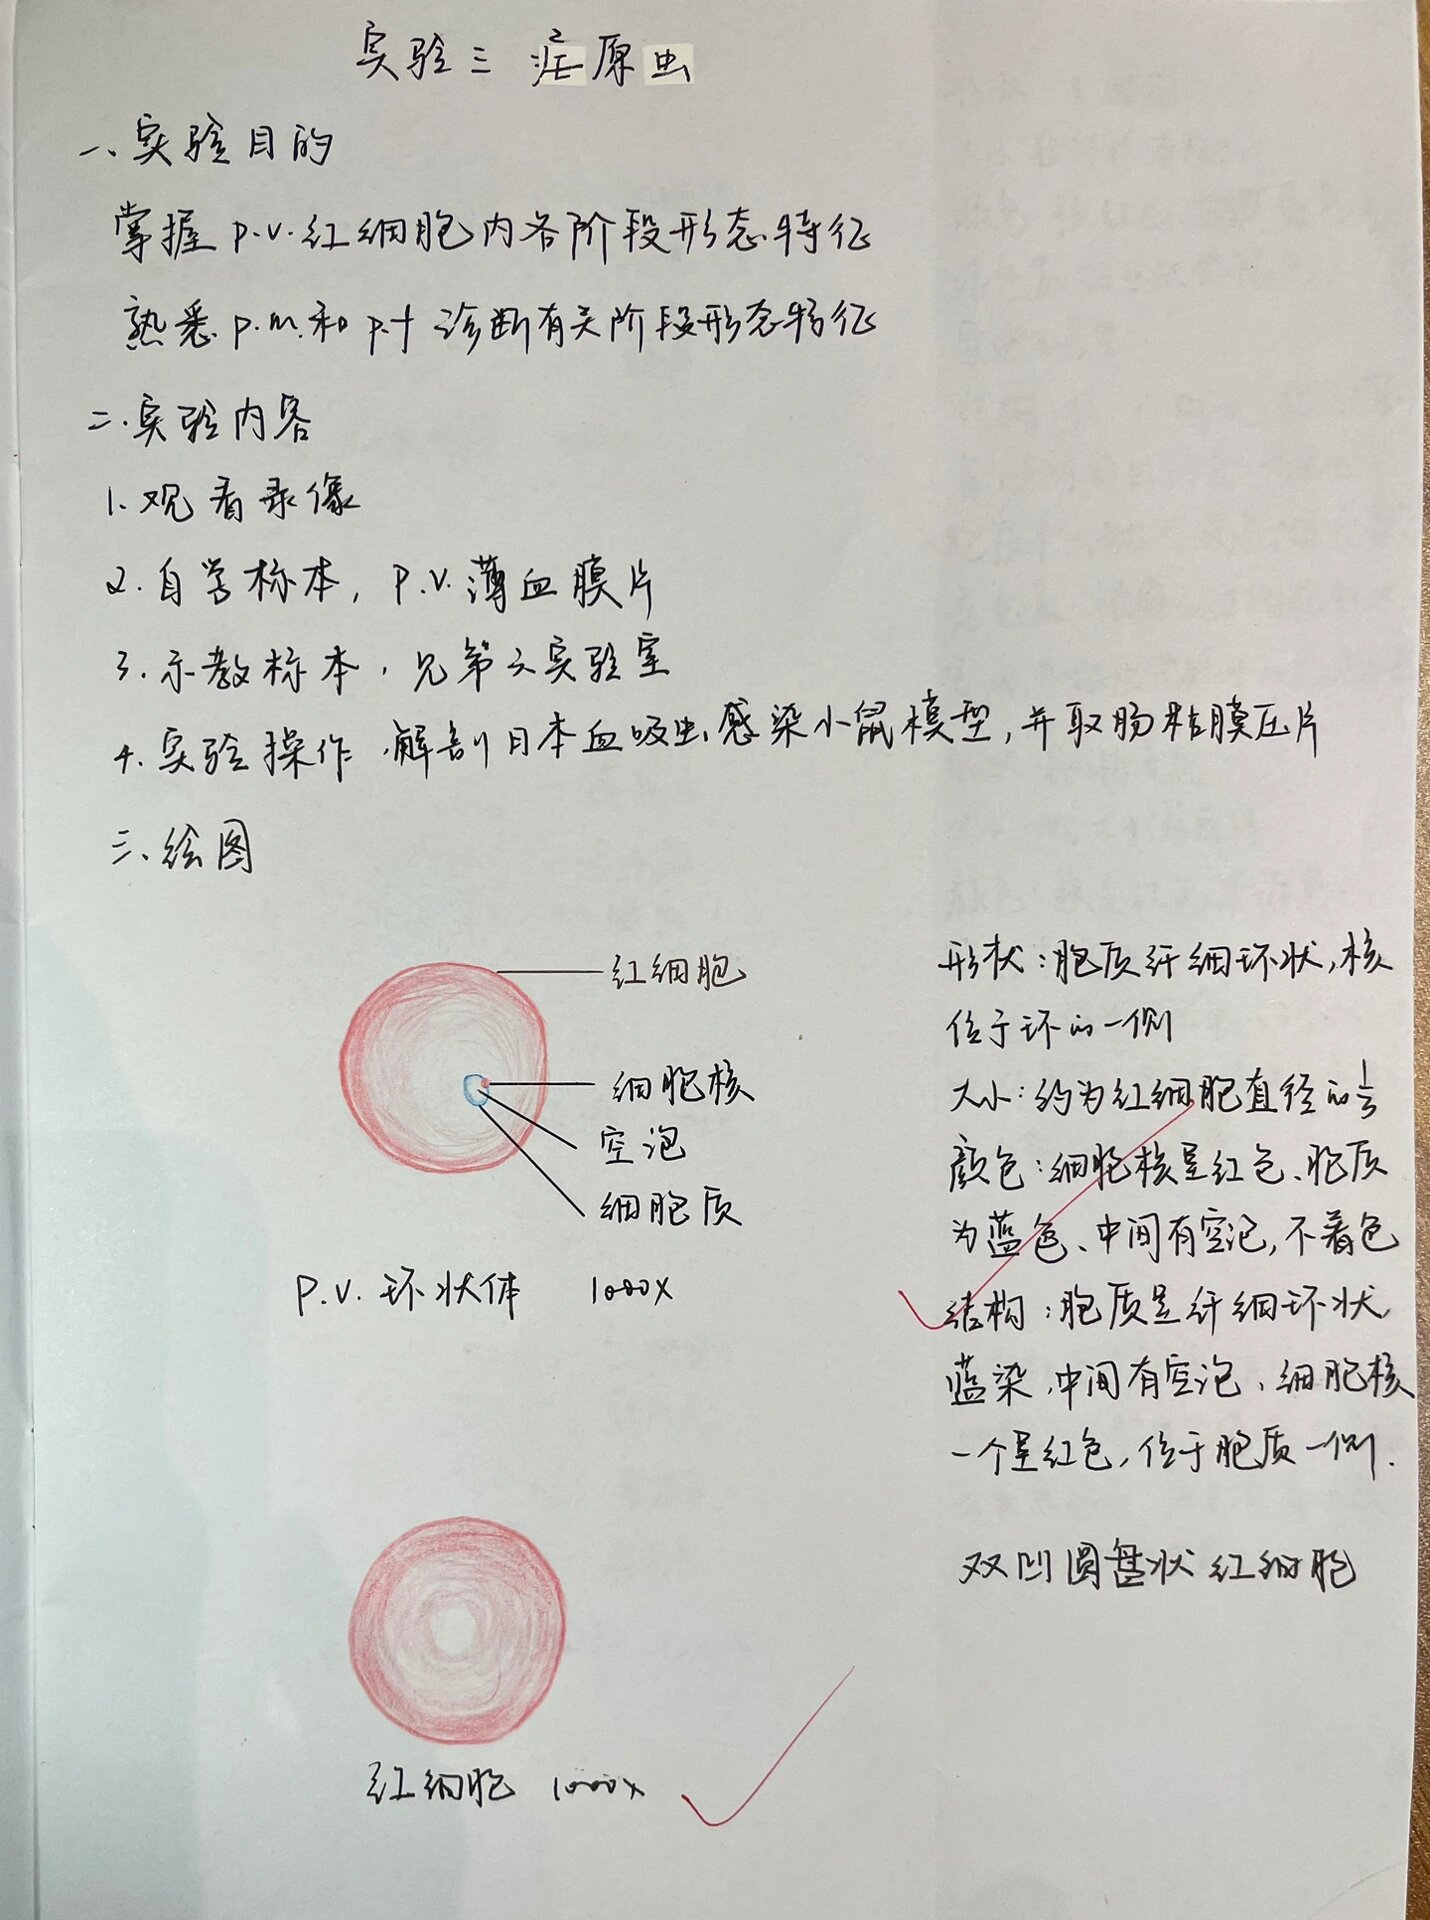 实验三 疟原虫
一、实验目的
掌握 p.v.红细胞内各阶段形态特征
熟悉 p.m.和 p.f 诊断有关阶段形态特征
二.实验内容
1.观看录像
2.自学标本,P.V.薄血膜片
3.示教标本,见第二实验室
4.实验操作,解剖日本血吸虫感染小鼠模型,并取肠粘膜压片
三、绘图
红细胞
细胞核
空泡
细胞质
P.V.环状体 1000X
形状:胞质纤细环状,核
位于环的一侧
大小:约为红细胞直径的
颜色:细胞核呈红色、胞质
为蓝色、中间有空泡,不着色
结构:胞质呈纤细环状
蓝染,中间有空泡、细胞核
一个呈红色,位于胞质一侧.
双凹圆盘状红细胞
红细胞 1000x